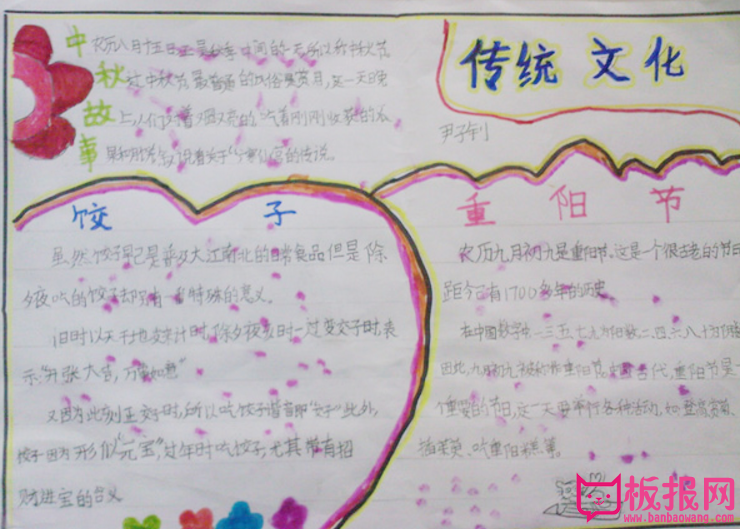 中秋故事
农历八月十五日正是秋季中间的一天所以称中秋节
过中秋节最普遍的风俗是赏月,这一天晚
上,人们吃着刚刚收获的水
果和月饼,说着关于月宫的传说。
传统文化
尹子钊
饺子
虽然饺子早已是普及大江南北的日常食品但是除
夕夜吃的饺子却别有一番特殊的意义。
旧时以天干地支来计时,除夕夜子时一过变交子时,表
示“开张大吉,万事如意”
又因为此刻正交子时,所以吃饺子谐音即“交子”此外,
饺子因为形似“元宝”,过年时吃饺子,尤其带有招
财进宝的含义
重阳节
农历九月初九是重阳节。这是一个很古老的节日
距今已有1700多年的历史
在中国数字中,一三五七九为阳数,二四六八十为阴
因此,九月初九被称作重阳节。中国古代,重阳节是一
个重要的节日,这一天要举行各种活动,如登高赏菊、
插茱萸、吃重阳糕等。
板报网
www.banbaowang.com